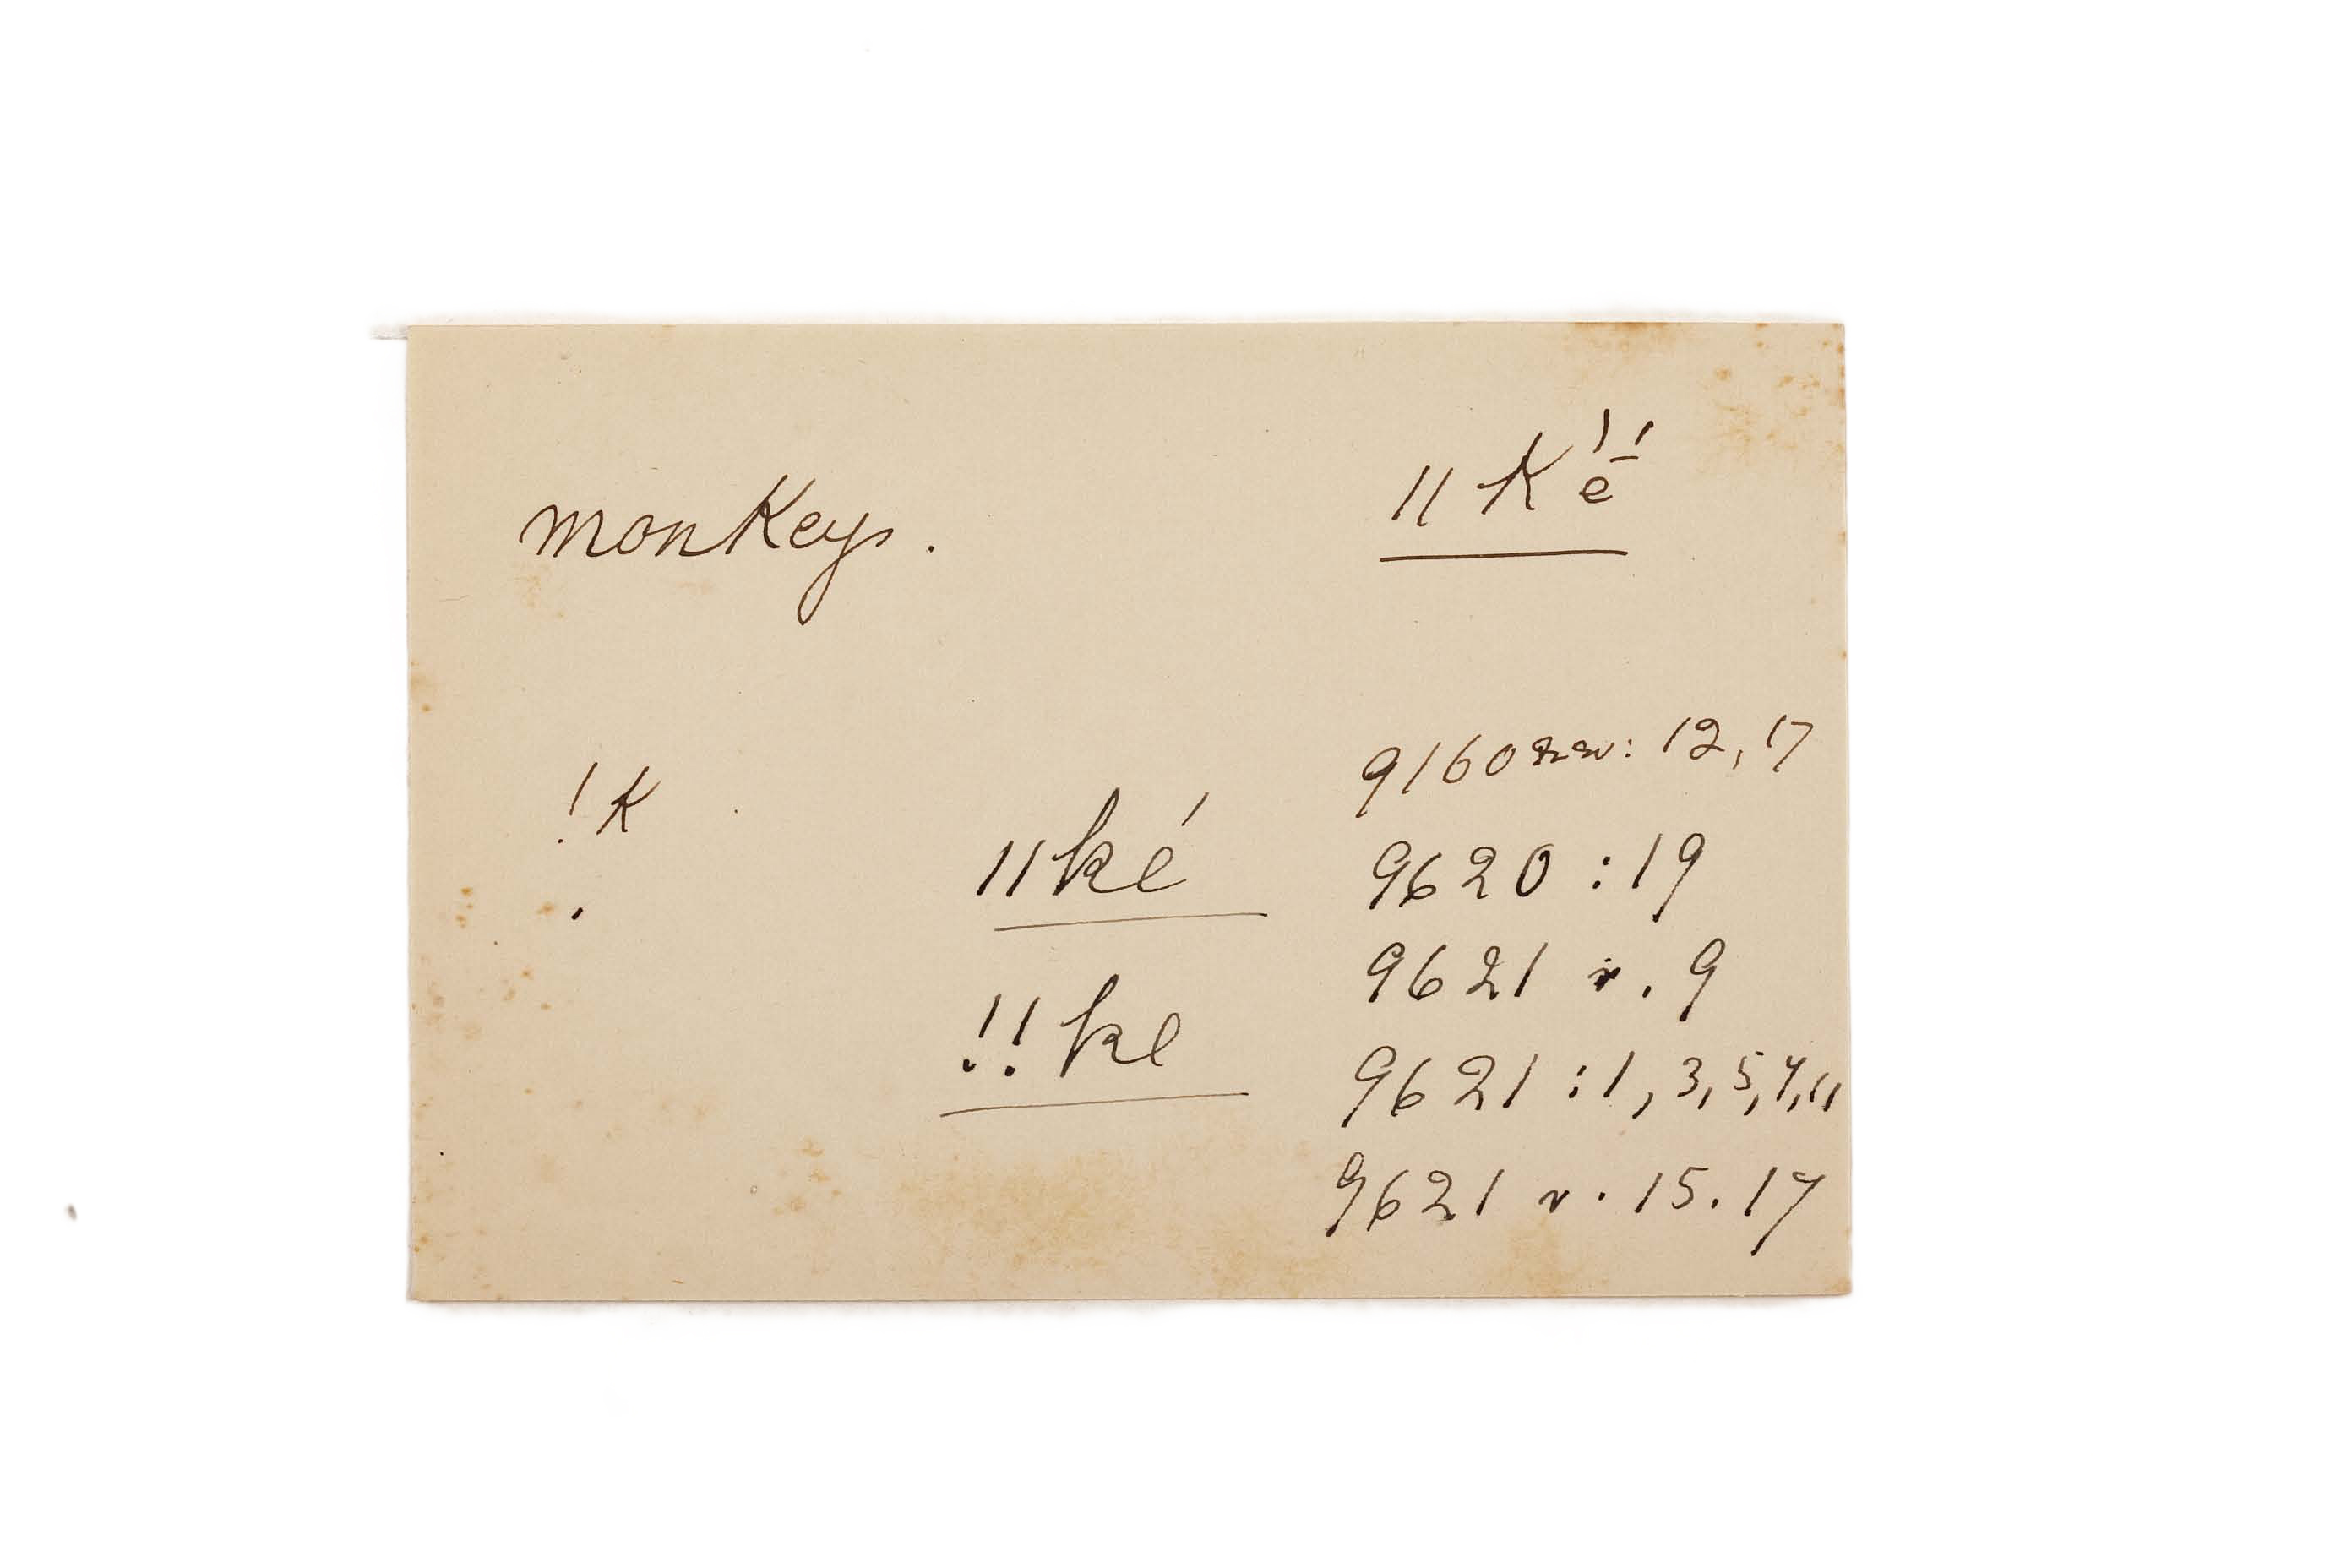 monkeys. ǁKē̍́
9160 rw: 12, 17
!K
ǁké 9620 : 19
9621 v. 9
!!ke 9621 : 1, 3, 5, 7, 11
9621 v. 15. 17